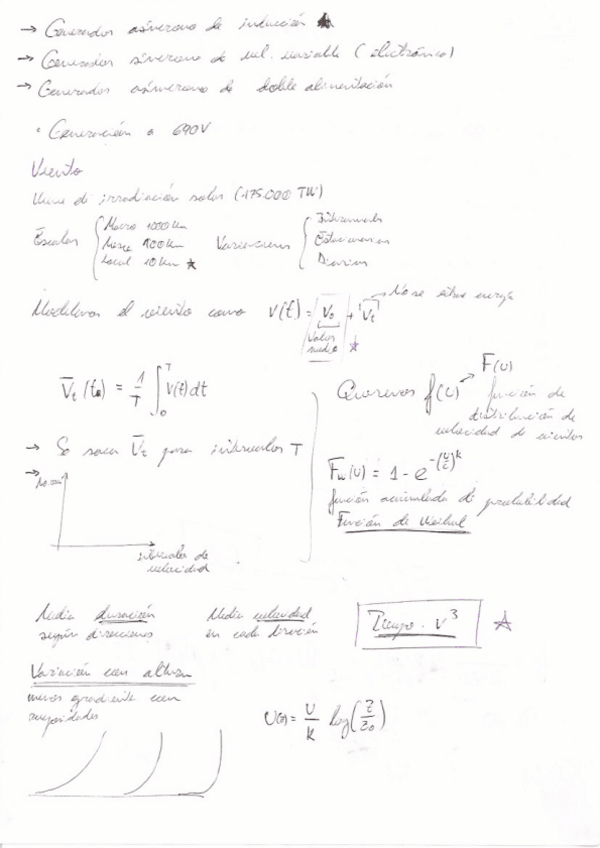 → Generador asíncrono de inducción ★
→ Generador síncrono de vel. variable (electrónico)
→ Generador asíncrono de doble alimentación
• Generación a 690V
Viento
Viene de irradiación solar (175.000 TW)
Escalas { Macro 1000 km
Meso 100 km
Local 10 km ★
Variaciones { Interanuales
Estacionarias
Diarias
Modelamos el viento como V(t) = V₀ + V_t
valor medio ★
→ No se extrae energía
V̄_t(t₀) = 1/T ∫₀ᵀ V(t) dt
→ Se saca V̄_t para intervalos T
→
No. casos
intervalos de velocidad
Queremos f(U) → F(U)
función de
distribución de
velocidad de vientos
F_w(U) = 1 - e^-(U/C)^k
función acumulada de probabilidad
Función de Weibul
Media duración
según direcciones
Media velocidad
en cada dirección
Tiempo · v³ ★
Variación con altura
menos gradiente con
rugosidades
U(z) = U/K log(z/z₀)